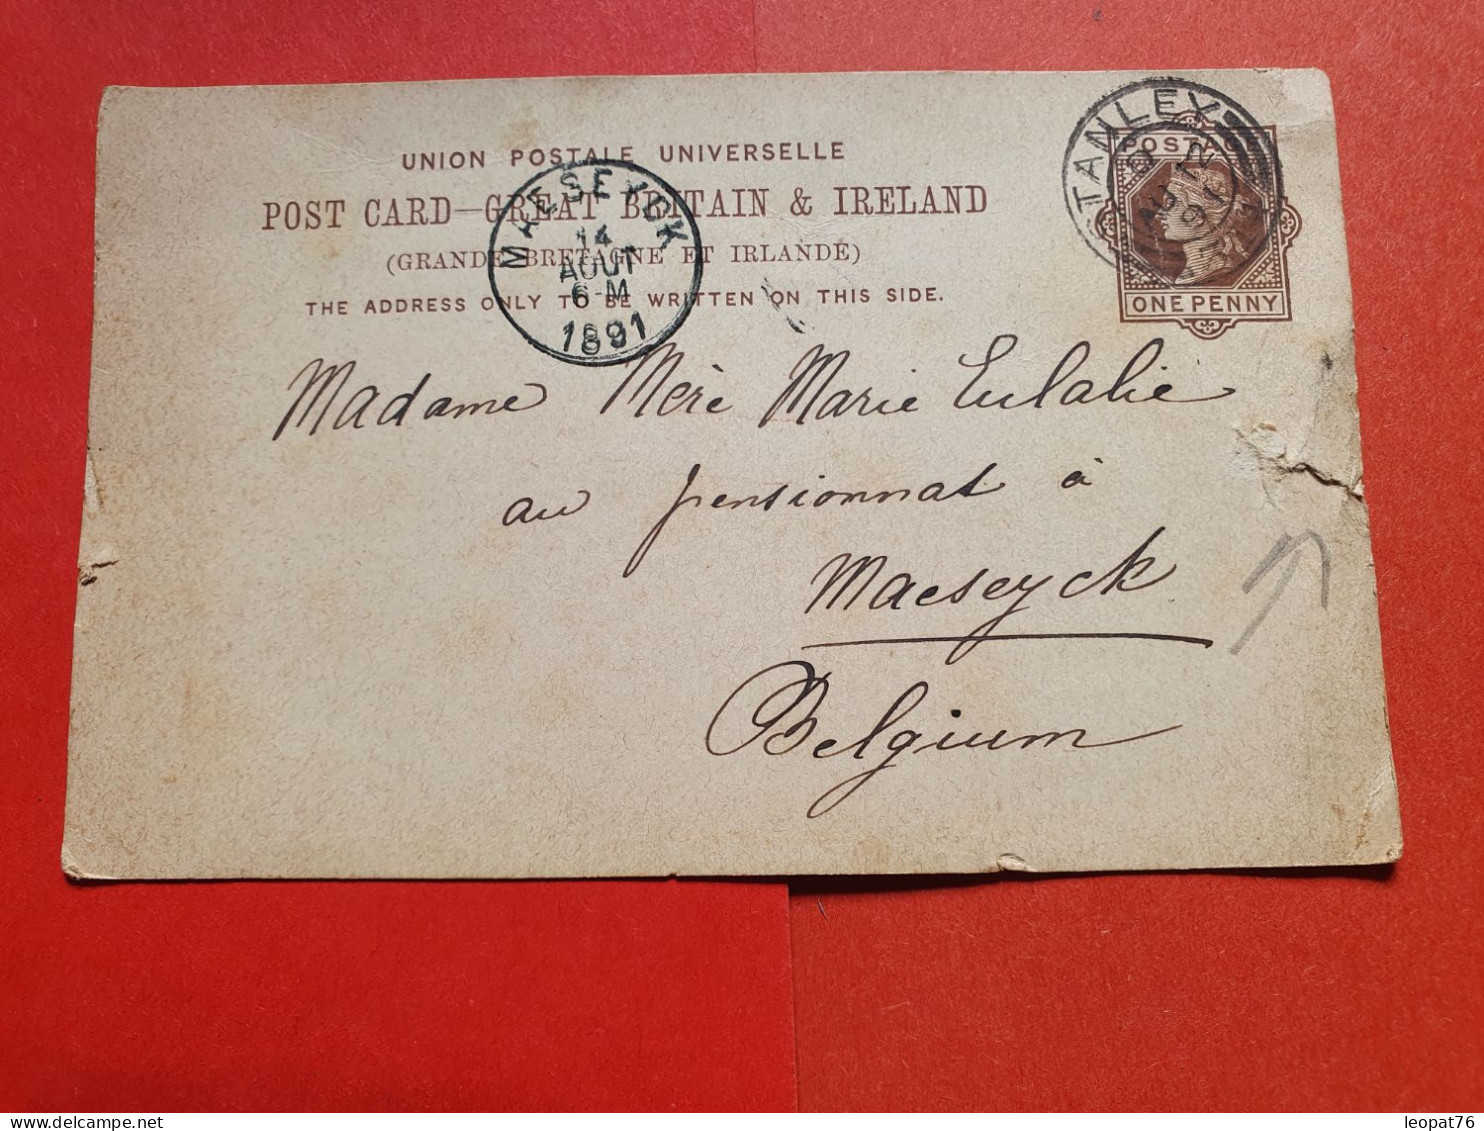 UNION POSTALE UNIVERSELLE
POST CARD—GREAT BRITAIN & IRELAND
(GRANDE BRETAGNE ET IRLANDE)
THE ADDRESS ONLY TO BE WRITTEN ON THIS SIDE.
MAESEYCK
14
AOUT
6-M
1891
TANLEY
D
AU 12
91
POSTAGE
ONE PENNY
Madame Mère Marie Eulalie
au pensionnat à
Maeseyck
Belgium
leopat76